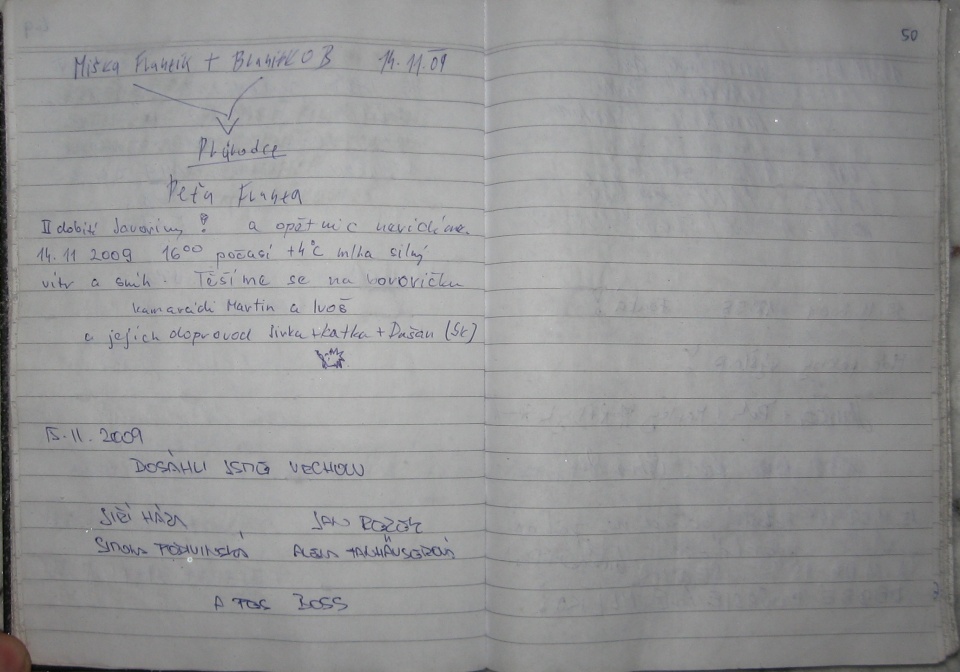 50
Miška Frantík + 14.11.09
Průvodce
Peťa Franta
II dobití Javořiny ! a opět nic nevidíme.
14.11 2009 16⁰⁰ počasí +4°C mlha silný
vítr a sníh. Těšíme se na borovičku
kamarádi Martin a Ivoš
a jejich doprovod Sivka + Katka + Dušan (SK)
15.11.2009
DOSÁHLI JSME VRCHOLU
JIŘÍ HÁZA JAN
SIMONA ALENA
A PES BOSS